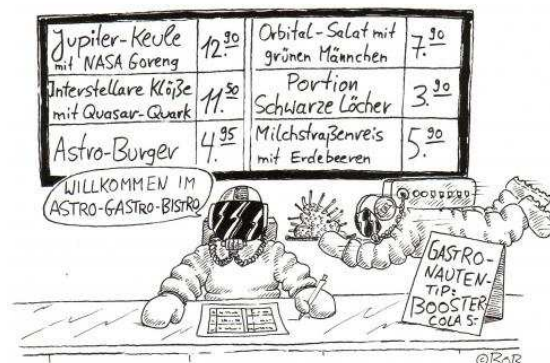 Jupiter-Keule
mit NASA Goreng
12.90
Orbital-Salat mit
grünen Männchen
7.90
Interstellare Klöße
mit Quasar-Quark
11.50
Portion
Schwarze Löcher
3.90
Astro-Burger
4.95
Milchstraßenreis
mit Erdebeeren
5.90
WILLKOMMEN IM
ASTRO-GASTRO-BISTRO
GASTRO-
NAUTEN-
TIP:
BOOSTER
COLA 5.-
©BOB